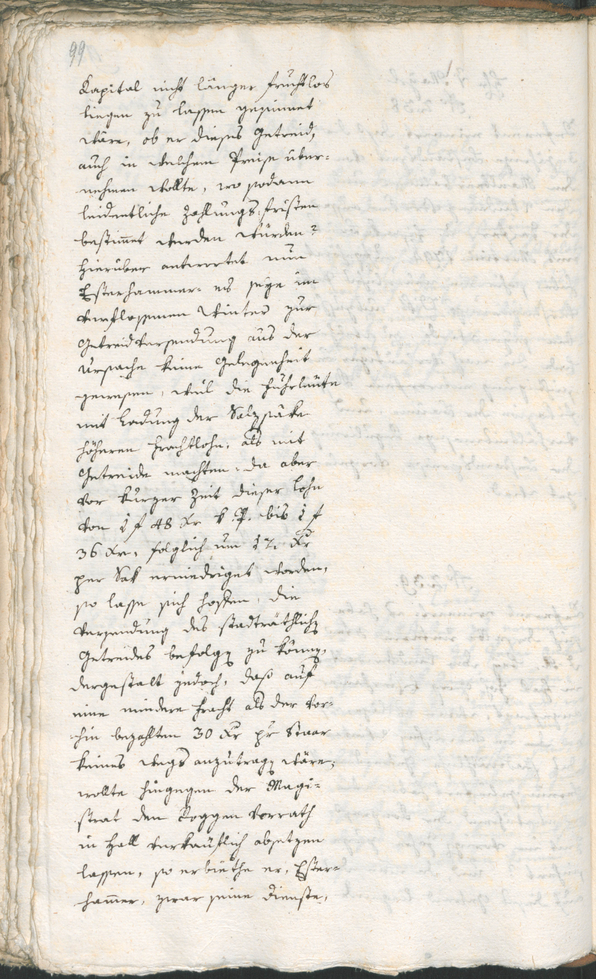 99
Kapital nicht länger fruchtlos
liegen zu lassen gesinnet
wäre, ob er dieses Getreid,
auch in welchem Preise über-
nehmen wollte, wo sodann
leidentliche Zahlungs-fristen
bestimmet werden würden?
Hierüber antwortet nun
Esterhammer: es seye im
verflossenen Winter zur
Getreidversendung aus der
Ursache keine Gelegenheit
gewesen, weil die Fuhrleute
mit Ladung der Salzsäke
höheren Frachtlohn, als mit
Getreide machten. da aber
vor kurzer Zeit dieser Lohn
von 1 f 48 Xr bis 1 f
36 Xr, folglich um 12 Xr
per Sak erniedriget worden,
so lasse sich hoffen, die
Versendung des stadträthlichen
Getreides befolgen zu können,
dergestalt jedoch, daß auf
eine mindere Fracht als der vor-
hin bezahlten 30 Xr pr Staar
keines wegs anzutragen wäre;
wollte hingegen der Magi-
strat den Roggen Vorrath
in Hall verkäuflich absetzen
lassen, so erbiethe er, Ester-
hammer, zwar seine Dienste,